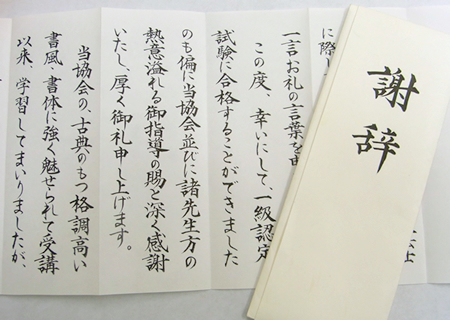 謝辞
に際し
一言お礼の言葉を申
この度、幸いにして、一級認定
試験に合格することができました
のも偏に当協会並びに諸先生方の
熱意溢れる御指導の賜と深く感謝
いたし、厚く御礼申し上げます。
当協会の、古典のもつ格調高い
書風・書体に強く魅せられて受講
以来、学習してまいりましたが、